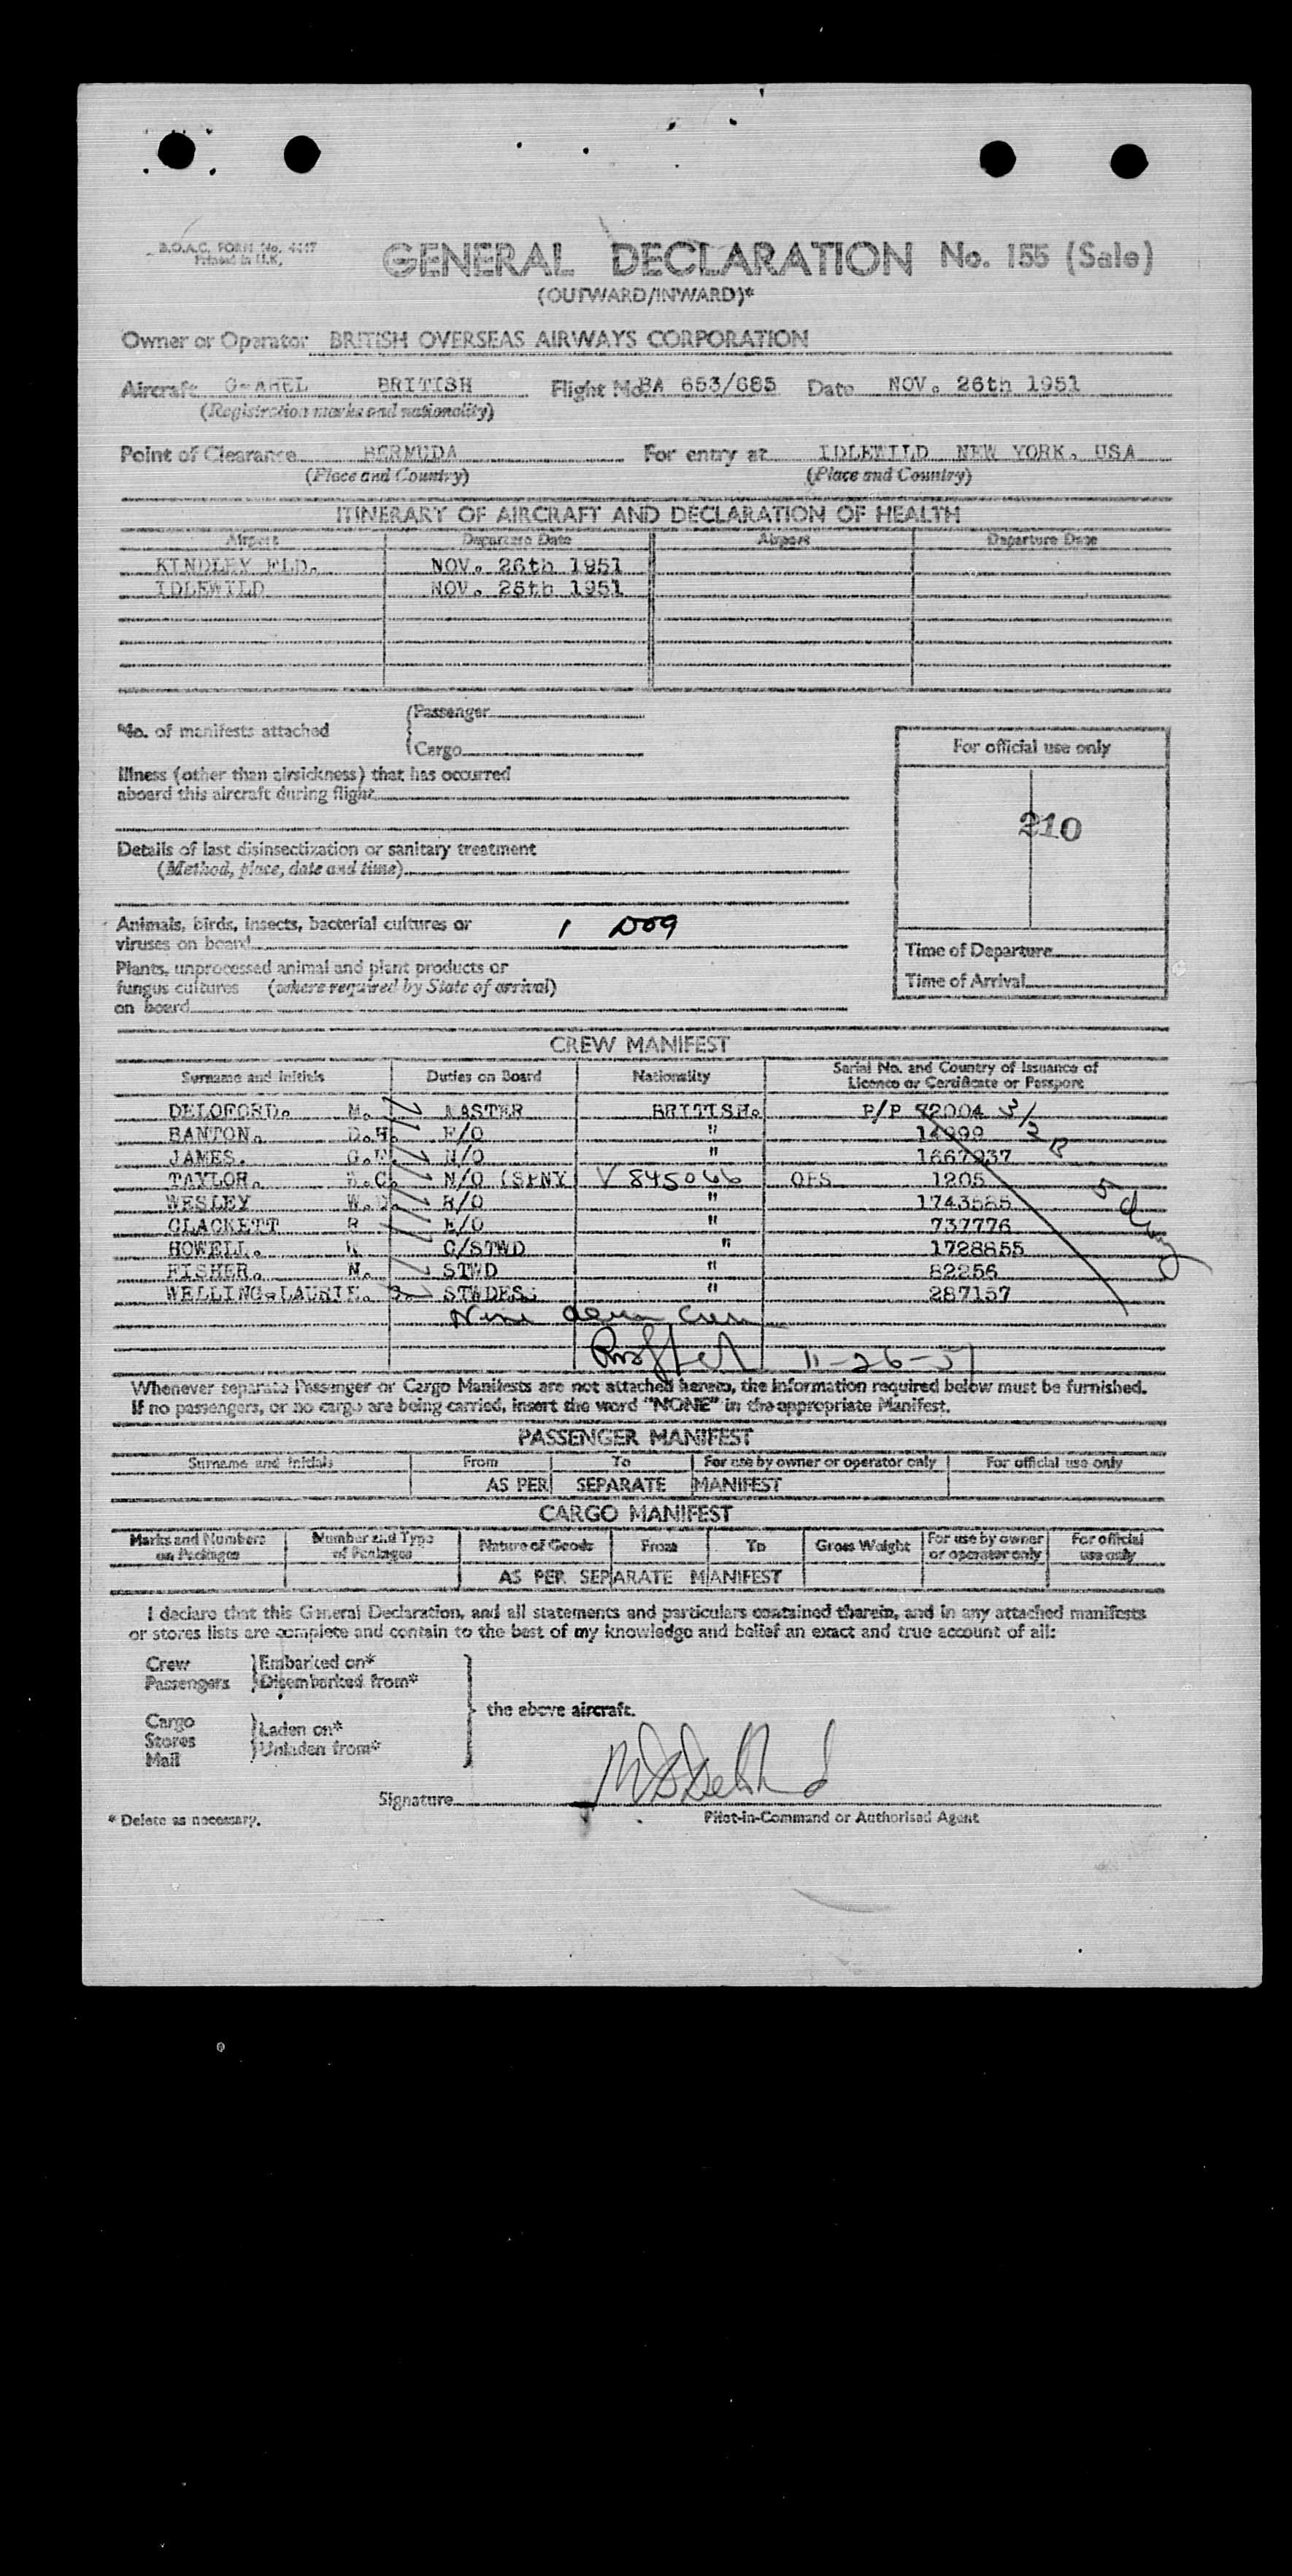 B.O.A.C. FORM No. 4447
Printed in U.K.
GENERAL DECLARATION No. 155 (Sale)
(OUTWARD/INWARD)*
Owner or Operator BRITISH OVERSEAS AIRWAYS CORPORATION
Aircraft G-AHEL BRITISH Flight No. BA 653/685 Date NOV. 26th 1951
(Registration marks and nationality)
Point of Clearance BERMUDA For entry at IDLEWILD NEW YORK. USA
(Place and Country) (Place and Country)
ITINERARY OF AIRCRAFT AND DECLARATION OF HEALTH
Airport Departure Date Airport Departure Date
KINDLEY FLD. NOV. 26th 1951
IDLEWILD NOV. 26th 1951
No. of manifests attached
Passenger
Cargo
For official use only
Illness (other than airsickness) that has occurred
aboard this aircraft during flight
210
Details of last disinsectization or sanitary treatment
(Method, place, date and time)
Animals, birds, insects, bacterial cultures or
viruses on board 1 DOG
Time of Departure
Plants, unprocessed animal and plant products or
fungus cultures (where required by State of arrival)
on board
Time of Arrival
CREW MANIFEST
Surname and Initials Duties on Board Nationality Serial No. and Country of Issuance of
Licence or Certificate or Passport
DELOFORD. M. MASTER BRITISH. P/P 82004
BANTON. D.H. F/O " 14999
JAMES. G. N/O " 1667937
TAYLOR. C. N/O (SPNY V 845066 OFS 1205
WESLEY W. R/O " 1743585
CLACKETT R E/O " 737776
HOWELL. C/STWD " 1728855
FISHER. N. STWD " 82256
WELLING-LAURIE. STWDESS " 287157
Nine
11-26-51
Whenever separate Passenger or Cargo Manifests are not attached hereto, the information required below must be furnished.
If no passengers, or no cargo are being carried, insert the word "NONE" in the appropriate Manifest.
PASSENGER MANIFEST
Surname and Initials From To For use by owner or operator only For official use only
AS PER SEPARATE MANIFEST
CARGO MANIFEST
Marks and Numbers on Packages Number and Type of Packages Nature of Goods From To Gross Weight For use by owner or operator only For official use only
AS PER SEPARATE MANIFEST
I declare that this General Declaration, and all statements and particulars contained therein, and in any attached manifests
or stores lists are complete and contain to the best of my knowledge and belief an exact and true account of all:
Crew Embarked on*
Passengers Disembarked from*
the above aircraft.
Cargo
Stores Laden on*
Mail Unladen from*
Signature
* Delete as necessary.
Pilot-in-Command or Authorised Agent